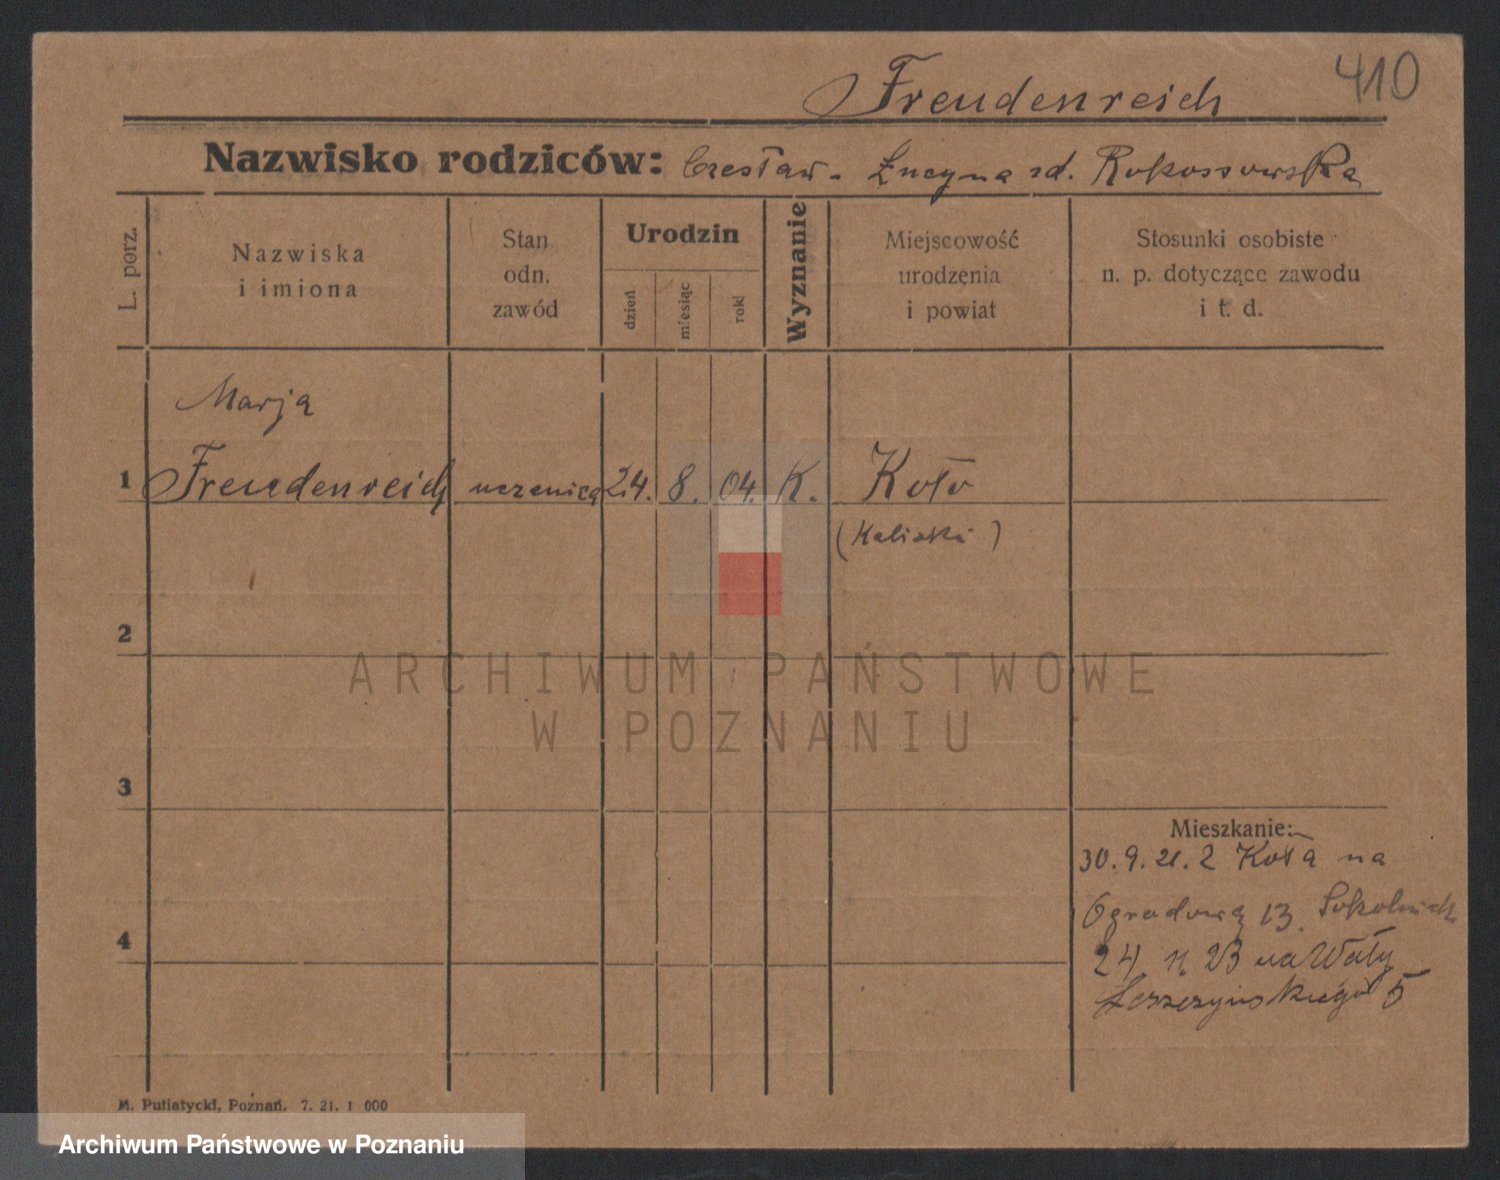 410
Freudenreich
Nazwisko rodziców: Czesław - Łucyna zd. Rokossowska
L. porz.
Nazwiska
i imiona
Stan
odn.
zawód
Urodzin
dzień
miesiąc
rok
Wyznanie
Miejscowość
urodzenia
i powiat
Stosunki osobiste
n. p. dotyczące zawodu
i t. d.
Marja
1 Freudenreich uczenica 24. 8. 04. K. Koło
(Kaliski)
2
ARCHIWUM PAŃSTWOWE
W POZNANIU
3
Mieszkanie:
30.9.21. z Koła na
Ogrodową 13.
4
24 23 na Wały
Leszczyńskiego 5
M. Putiatycki, Poznań. 7. 21. 1 000
Archiwum Państwowe w Poznaniu